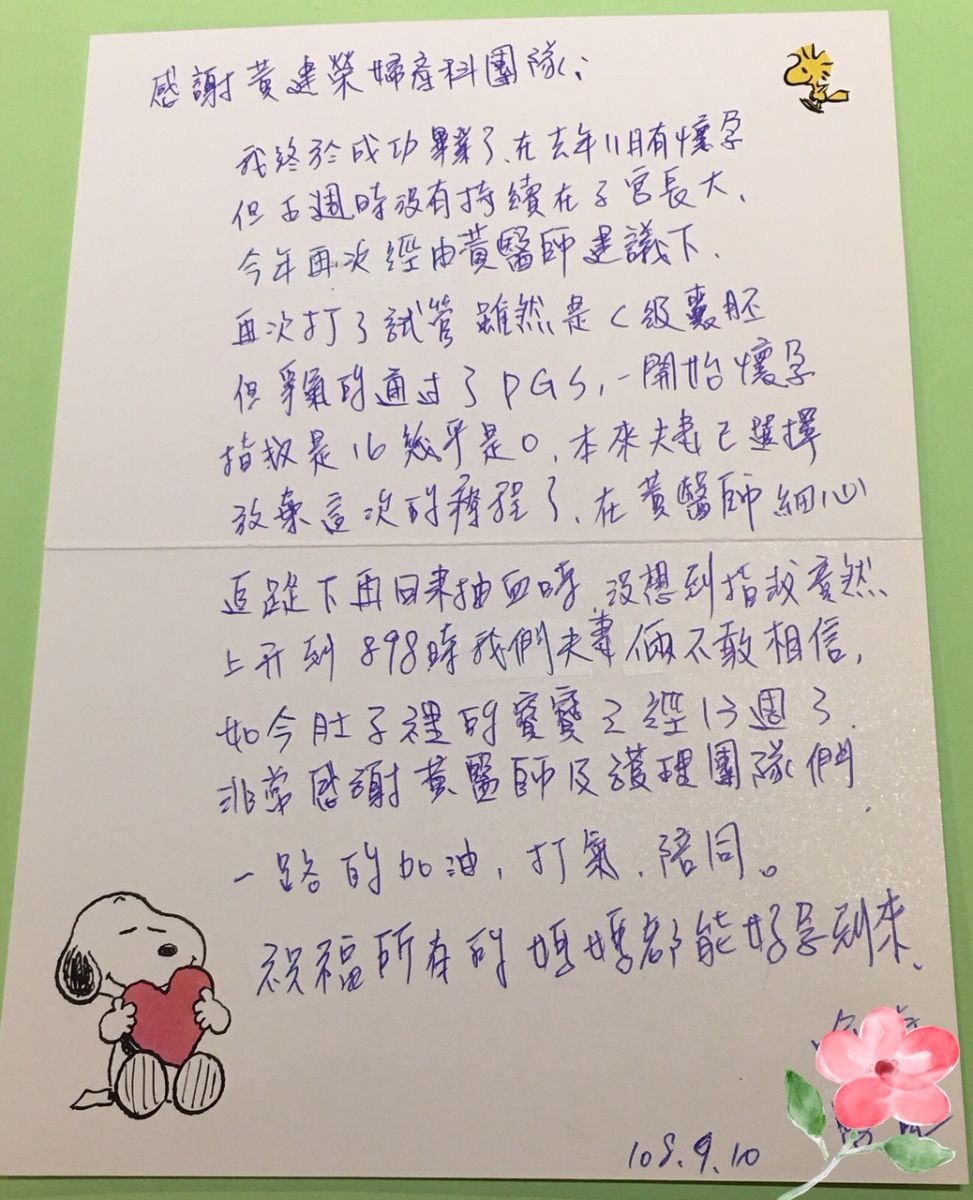 感謝黃建榮婦產科團隊:
我終於成功畢業了、在去年11月有懷孕
但五週時沒有持續在子宮長大、
今年再次經由黃醫師建議下、
再次打了試管 雖然是C級囊胚
但爭氣的通过了PGS,一開始懷孕
指數是16幾乎是0,本來夫妻已選擇
放棄這次的療程了、在黃醫師細心
追蹤下再回来抽血時、沒想到指數竟然
上升到898時我們夫妻倆不敢相信,
如今肚子裡的寶寶已經13週了.
非常感謝黃醫師及護理團隊們.
一路的加油,打氣、陪同。
祝福所有的媽媽都能好孕到來、
108.9.10